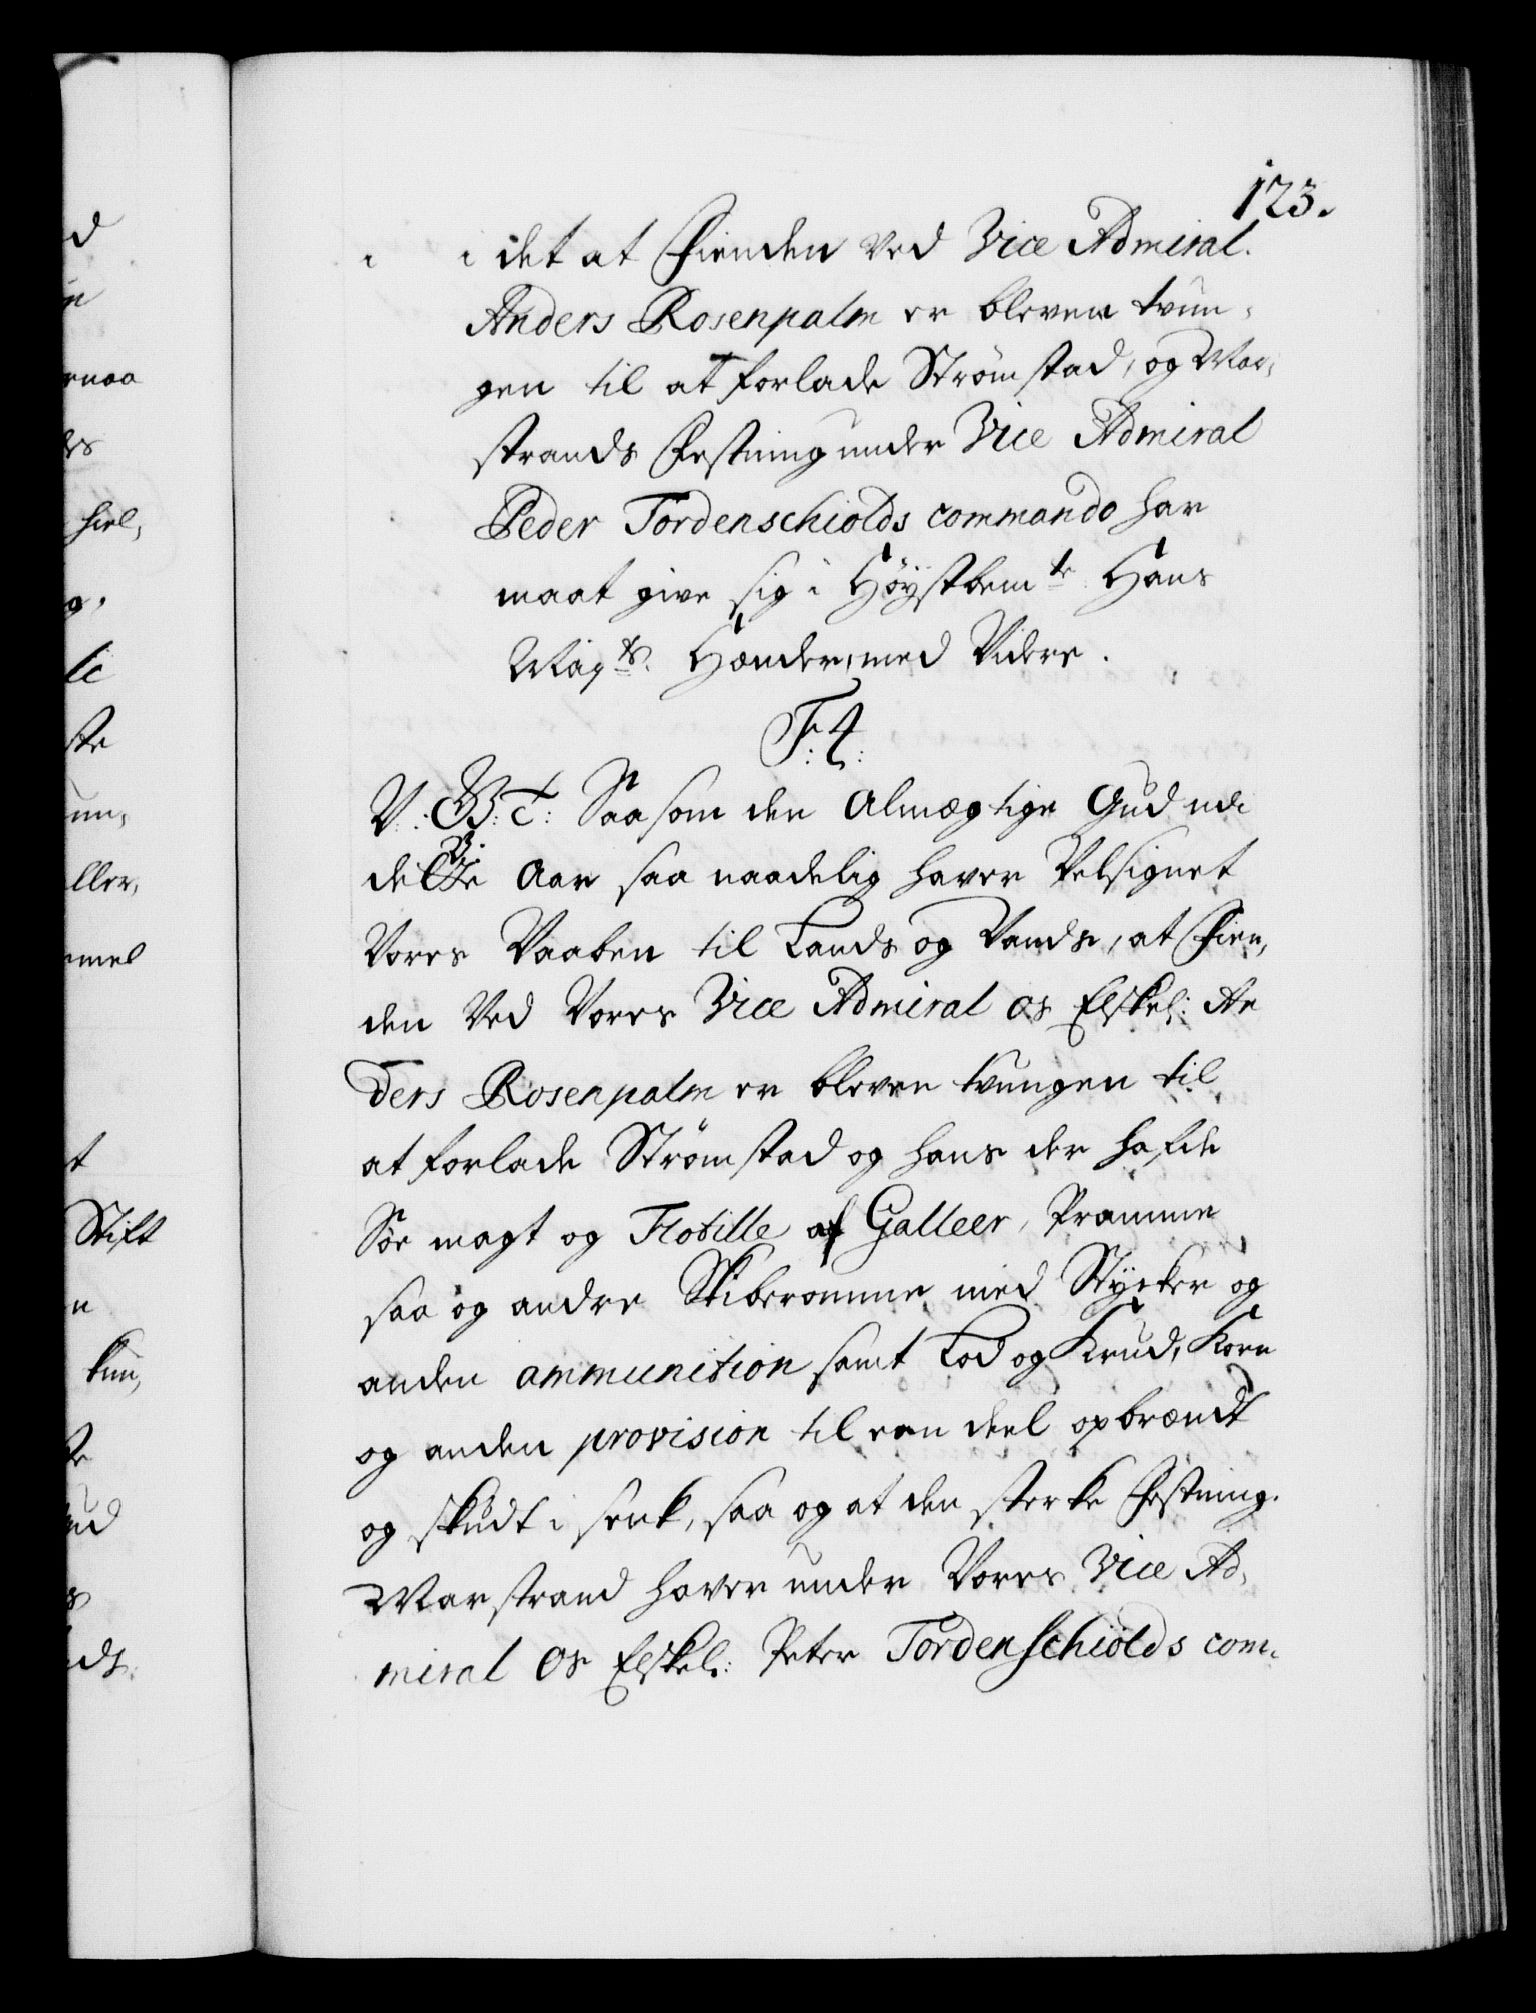 123.
i det at Fienden ved Vice Admiral
Anders Rosenpalm er bleven tvun-
gen til at forlade Strømstad, og Mar-
strands Festning under Vice Admiral
Peder Tordenschiolds commando har
maat give sig i Høystbemte Hans
Mayts Hænder, med Videre.
F: 4:
V: G: T: Saasom den Almægtige Gud udi
dette Aar saa naadelig haver Velsignet
Vores Vaaben til Lands og Vands, at Fien-
den ved Vores Vice Admiral os Elskel: An
ders Rosenpalm er bleven tvungen til
at forlade Strømstad og hans der hafde
Søe magt og Flotille af Galleer, Pramme
saa og andre Skiberomme med Stycker og
anden ammunition samt Lod og Krud, Korn
og anden provision til een deel opbrændt
og skudt i senk, saa og at den sterke Festning
Marstrand haver under Vores Vice Ad-
miral Os Elskel: Peter Tordenschiolds com-